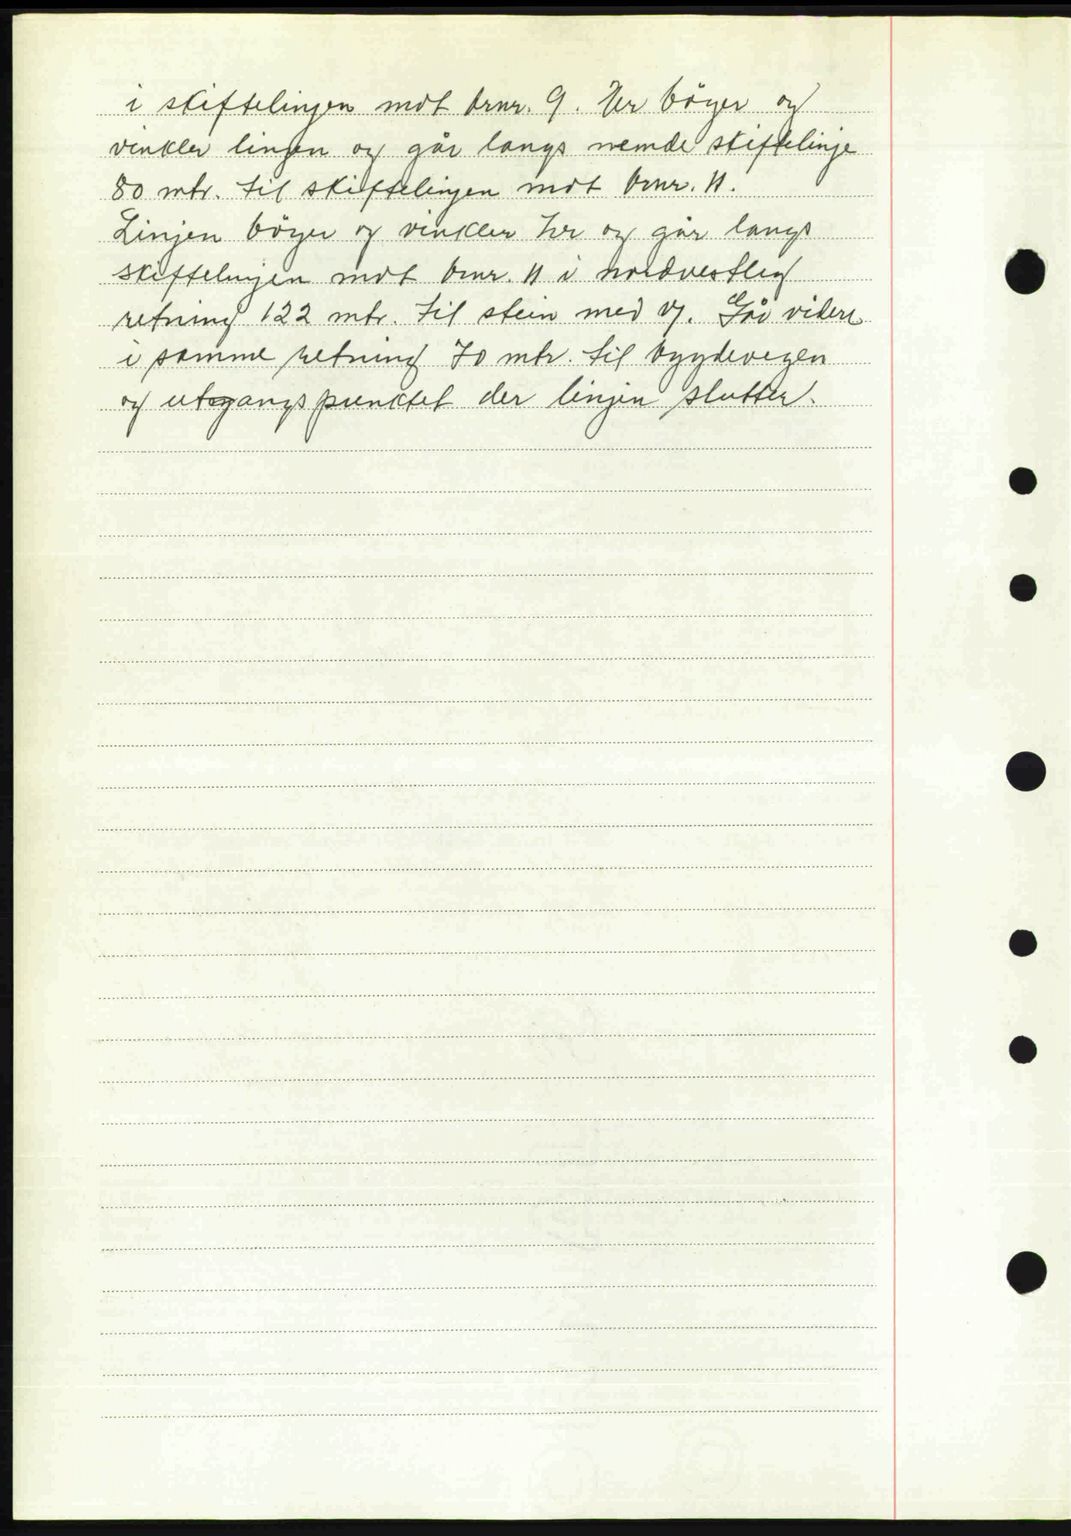 i skiftelinjen mot brnr. 9. Her böyer og
vinkler linjen og går langs nemde skiftelinje
80 mtr. til skiftelinjen mot brnr. 11.
Linjen böyer og vinkler her og går langs
skiftelinjen mot brnr. 11 i nordvestleg
retning 122 mtr. til stein med
Går videre
i samme retning 70 mtr. til bygdevegen
og utgangspunktet der linjen slutter.